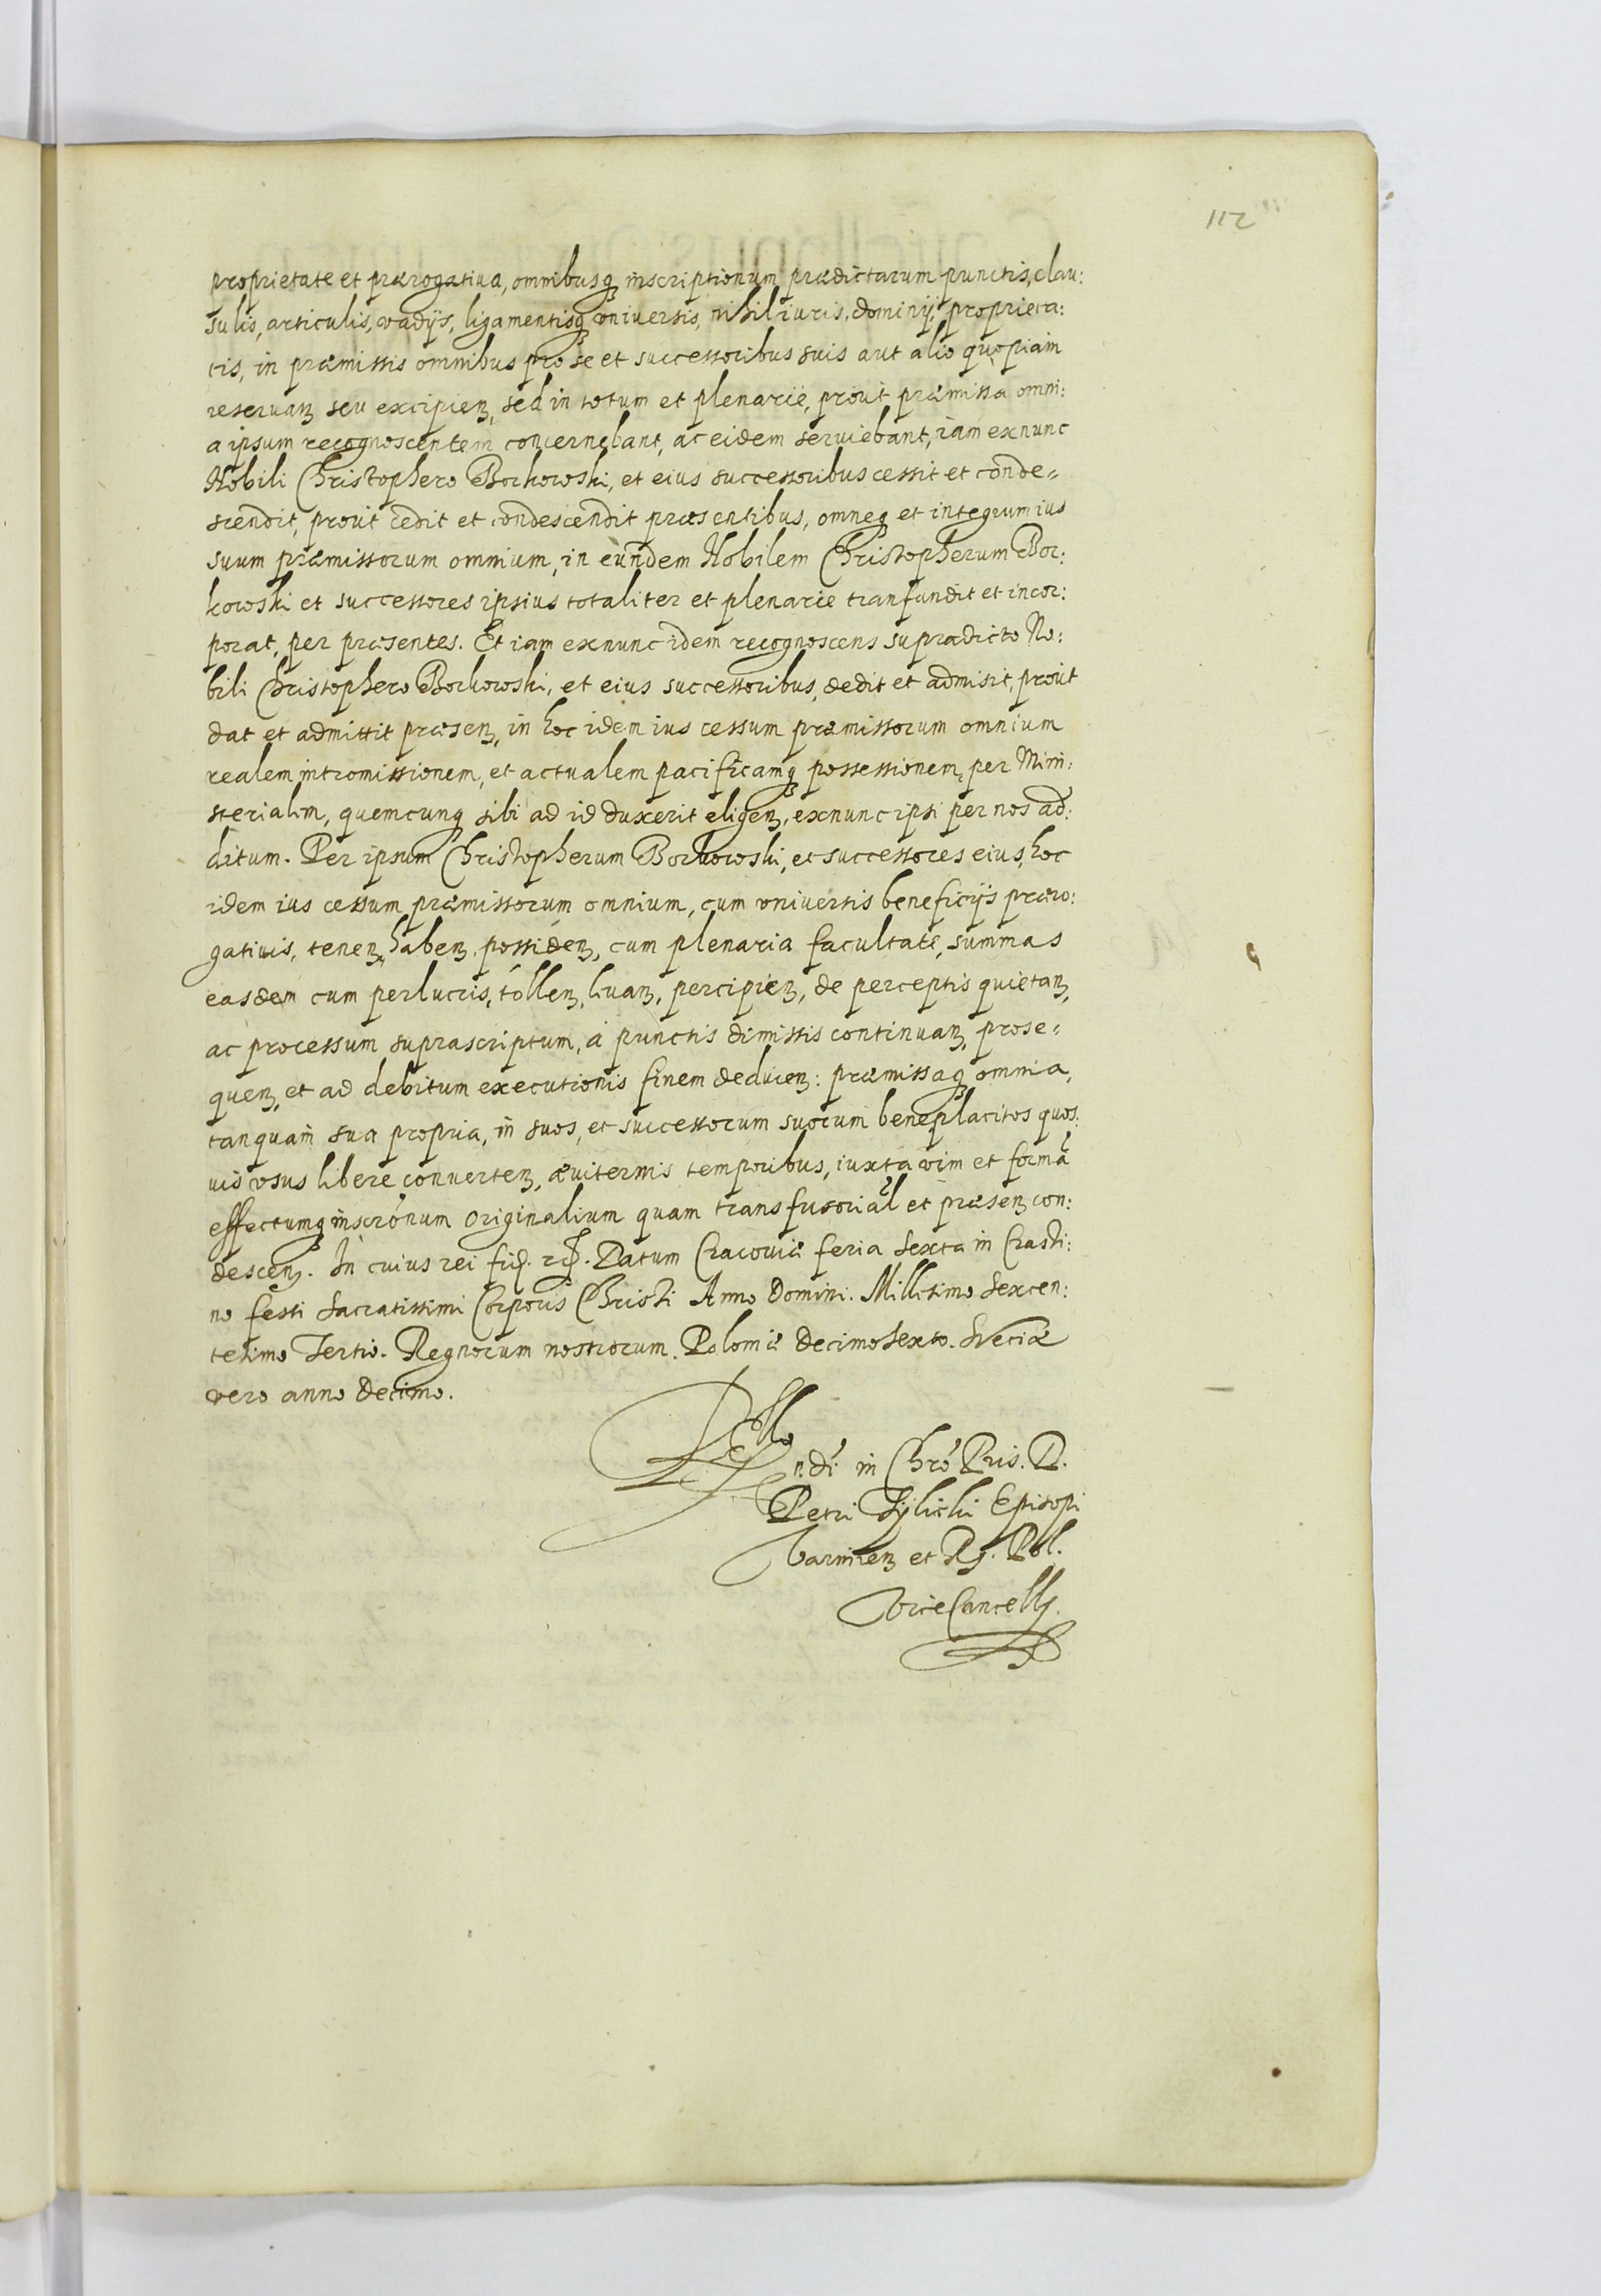 112
proprietate et prærogatiua, omnibusq₃ inscriptionum prædictarum punctis, clau:
sulis, articulis, vadijs, ligamentisq₃ vniuersis, nihil iuris, dominij, proprieta:
tis, in præmissis omnibus pro se et successoribus suis aut alio quopiam
reseruan₃ seu excipien₃, sed in totum et plenarie, prout præmissa omni:
a ipsum recognoscentem concernebant, ac eidem seruiebant, iam exnunc
Nobili Christophero Borkowski, et eius successoribus cessit et conde„
scendit, prout cedit et condescendit præsentibus, omneq₃ et integrum ius
suum præmissorum omnium, in eundem Nobilem Christopherum Bor:
kowski et successores ipsius totaliter et plenarie tranfundit et incor:
porat, per præsentes. Et iam exnunc idem recognoscens supradicto No:
bili Christophero Borkowski, et eius successoribus, dedit et admisit, prout
dat et admittit præsen₃, in hoc idem ius cessum præmissorum omnium
realem intromissionem, et actualem pacificamq₃ possessionem, per Mini:
sterialem, quemcunq₃ sibi ad id duxerit eligen₃, exnunc ipsi per nos ad:
ditum. Per ipsum Christopherum Borkowski, et successores eius, hoc
idem ius cessum præmissorum omnium, cum vniuersis beneficijs præro:
gatiuis, tenen₃, haben₃, possiden₃, cum plenaria facultate, summas
easdem cum perlucris, tollen₃, leuan₃, percipien₃, de perceptis quietan₃,
ac processum suprascriptum, á punctis dimissis continuan₃, prose„
quen₃, et ad debitum executionis finem deducen₃: præmissaq₃ omnia,
tanquam sua propria, in suos, et successorum suorum beneplacitos quos:
uis vsus libere conuerten₃, æuiternis temporibus, iuxta vim et formã
effectumq₃ inscrónum originalium quam transfusorial et præsen₃ con:
descen₃. In cuius rei fid. Datum Cracouiæ feria Sexta in Crasti:
no festi Sacratissimi Corporis Christi Anno Domini. Millesimo Sexcen:
tesimo Tertio. Regnorum nostrorum. Poloniæ decimo Sexto. Sueciæ
vero anno Decimo.
Rello
ndi in Chró Pris. D.
Petri Tylicki Episcopi
Varmien₃ et R. Pol.
ViceCancell.